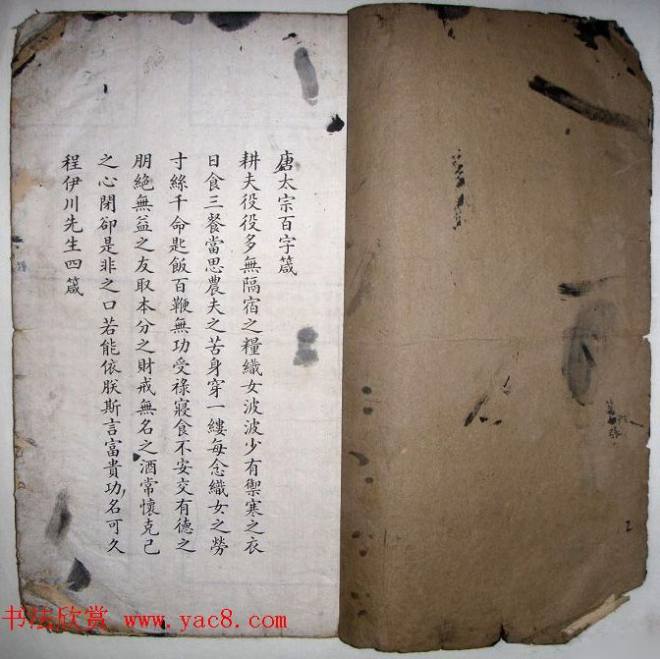 唐太宗百字箴
耕夫役役多無隔宿之糧織女波波少有禦寒之衣
日食三餐當思農夫之苦身穿一縷每念織女之勞
寸絲千命匙飯百鞭無功受祿寢食不安交有德之
朋絕無益之友取本分之財戒無名之酒常懷克己
之心閉卻是非之口若能依朕斯言富貴功名可久
程伊川先生四箴
书法欣赏 www.yac8.com